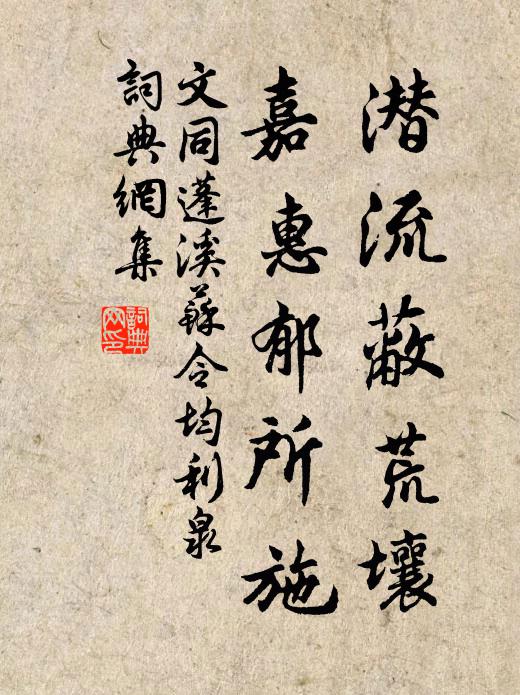 潜流蔽荒壤
嘉惠郁所施
文同蓬溪蘇令均利泉
詞典網集
詞典
网印